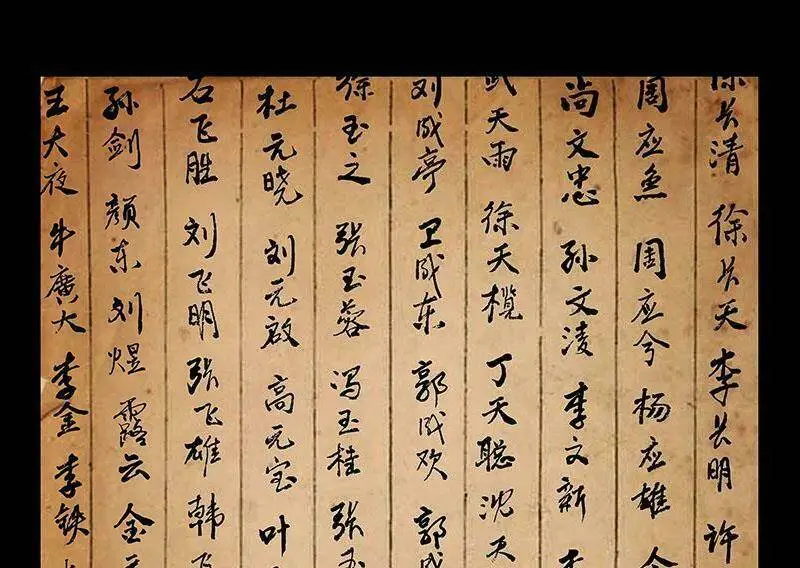 徐长清 徐长天 李长明 许
周应鱼 周应兮 杨应雄
尚文忠 孙文凌 李文新
武天雨 徐天榄 丁天聪 沈天
刘成亭 卫成东 郭成欢 郭成
徐玉之 张玉蓉 冯玉桂 张玉
杜元晓 刘元启 高元宝 叶
石飞胜 刘飞明 张飞雄 韩飞
孙剑 颜东 刘煜 露云 金
王大夜 牛廣大 李金 李铁